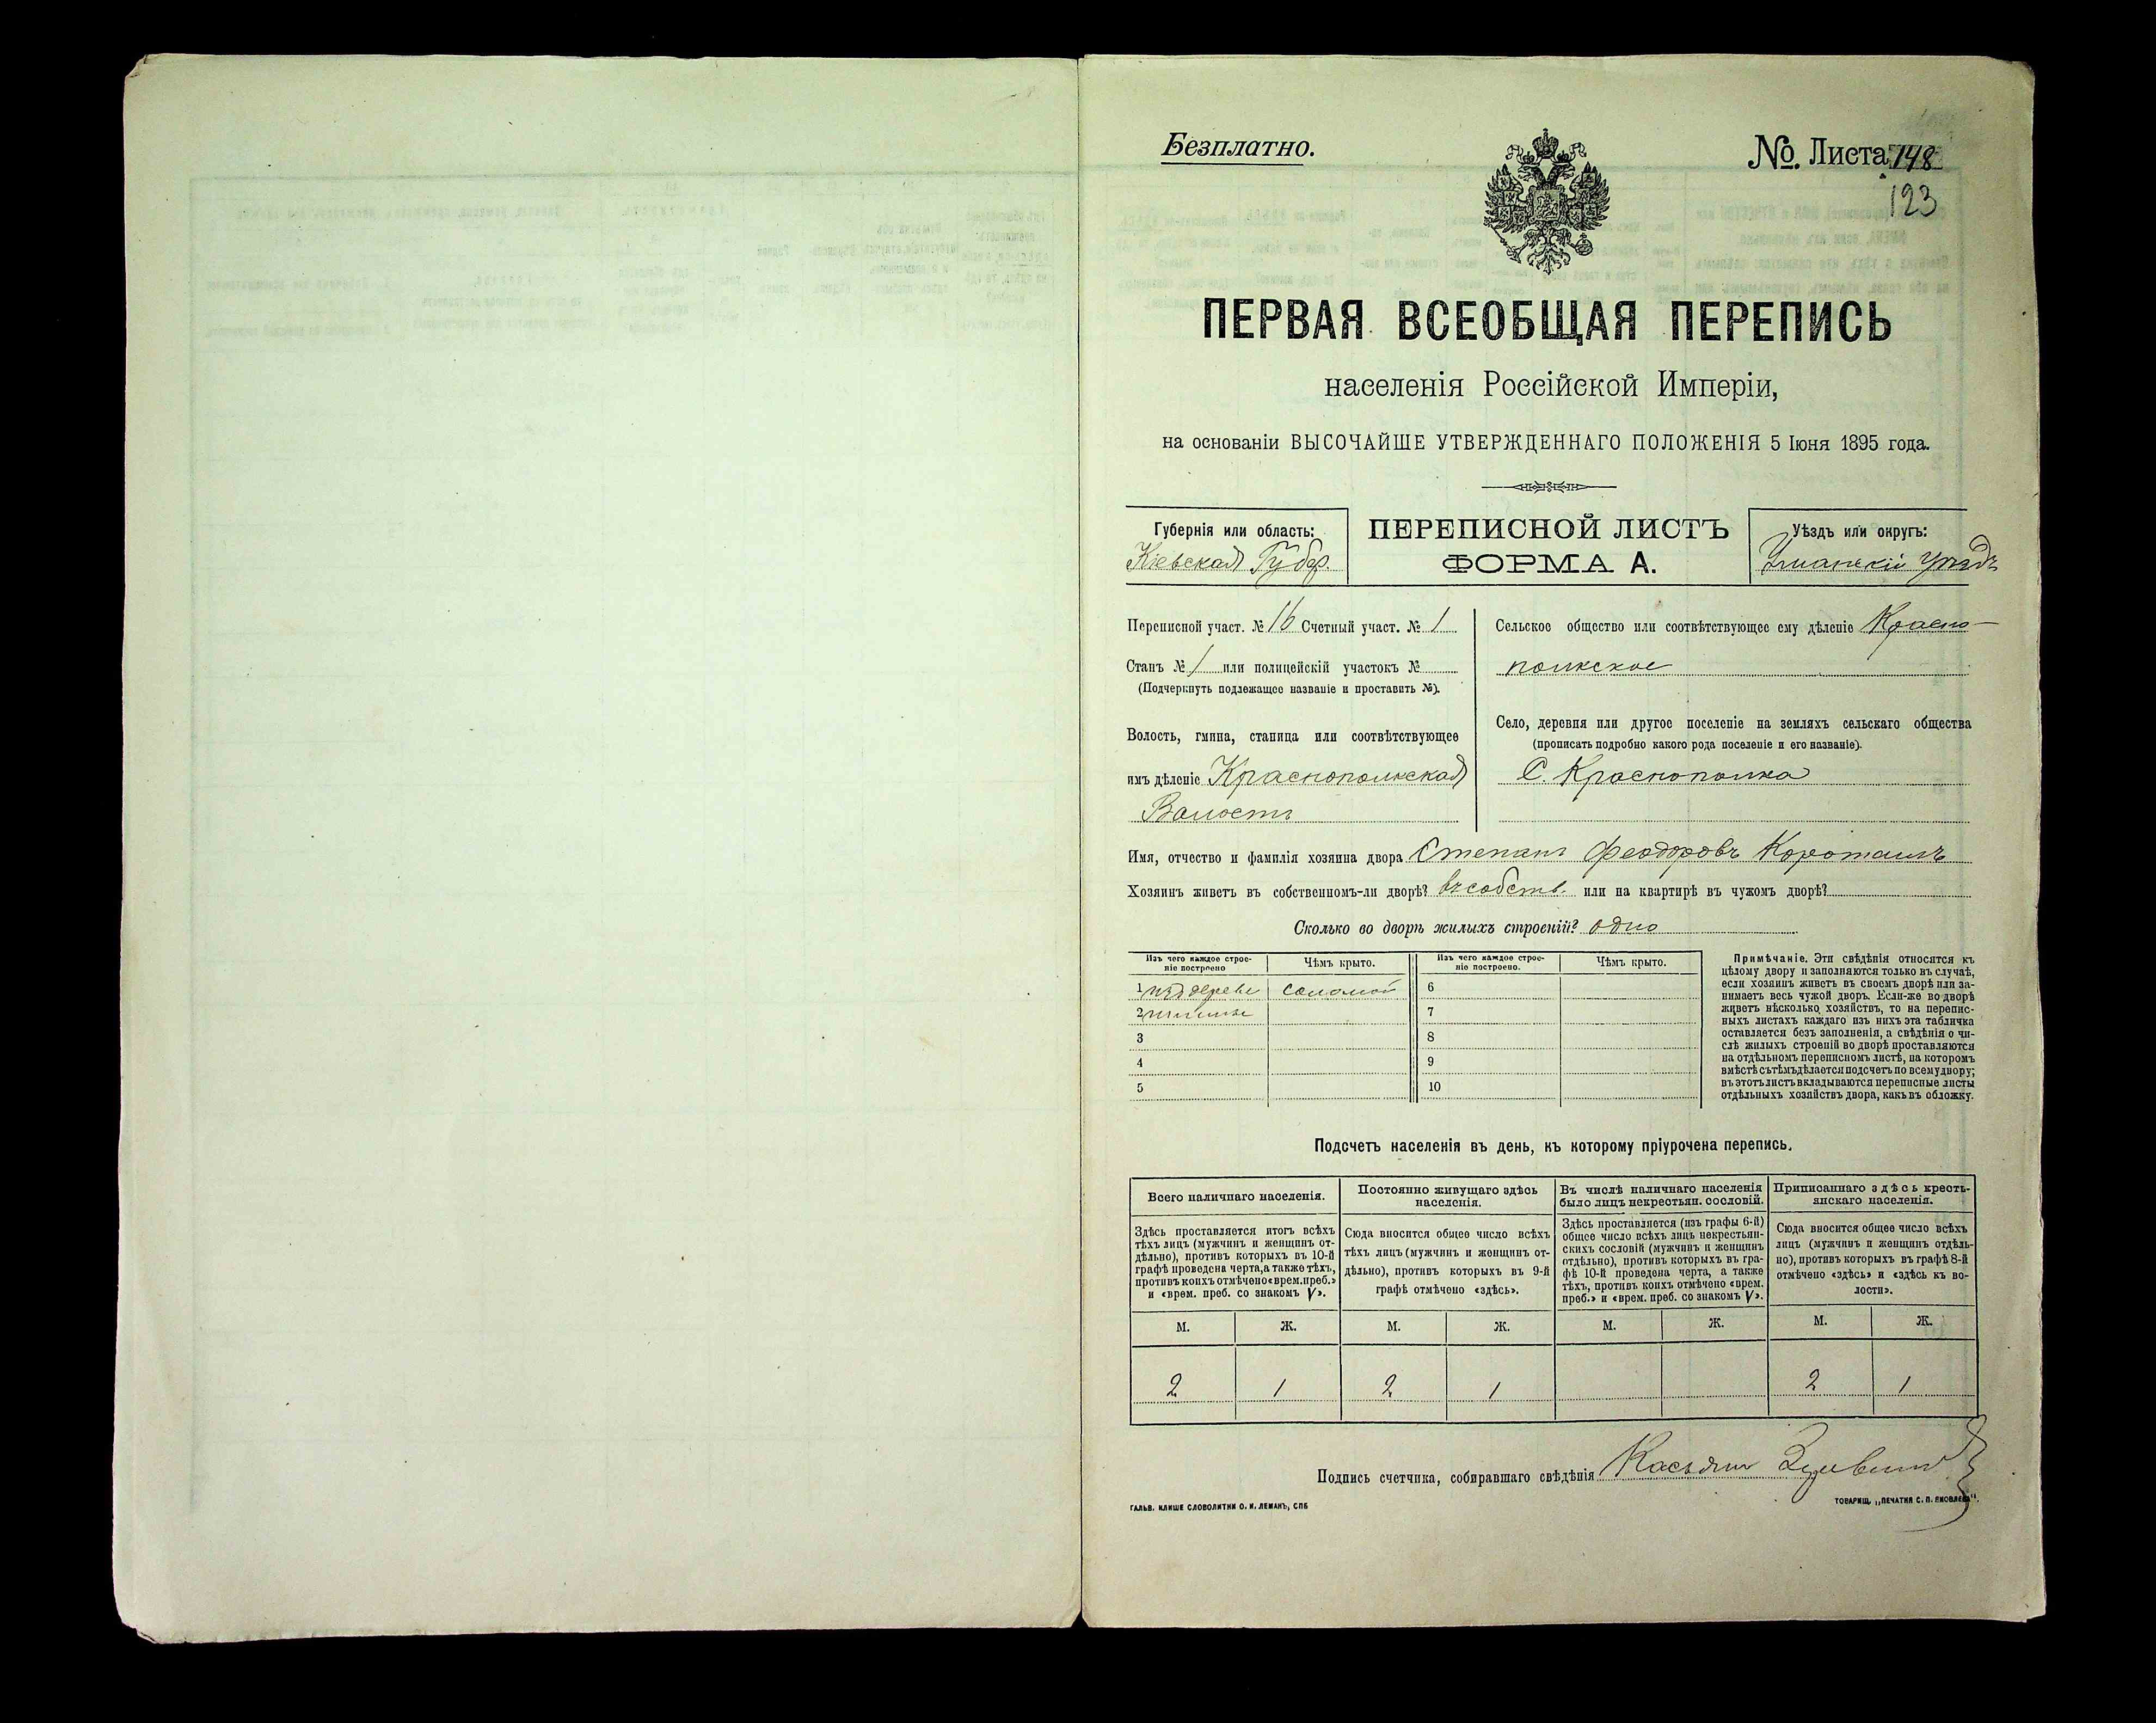 Безплатно.
№. Листа 148
123
ПЕРВАЯ ВСЕОБЩАЯ ПЕРЕПИСЬ
населенія Россійской Имперіи,
на основаніи ВЫСОЧАЙШЕ УТВЕРЖДЕННАГО ПОЛОЖЕНІЯ 5 Іюня 1895 года.
Губернія или область:
Кіевская Губер.
ПЕРЕПИСНОЙ ЛИСТЪ
ФОРМА А.
Уѣздъ или округъ:
Уманскій уѣздъ
Переписной участ. № 16 Счетный участ. № 1
Станъ № 1 или полицейскій участокъ №
(Подчеркнуть подлежащее названіе и проставить №).
Волость, гмина, станица или соотвѣтствующее
имъ дѣленіе Краснопольская
Волость
Сельское общество или соотвѣтствующее ему дѣленіе Красно-
польское
Село, деревня или другое поселеніе на земляхъ сельскаго общества
(прописать подробно какого рода поселеніе и его названіе).
С. Краснополка
Имя, отчество и фамилія хозяина двора Степанъ Феодоровъ
Хозяинъ живетъ въ собственномъ-ли дворѣ? въ собств. или на квартирѣ въ чужомъ дворѣ?
Сколько во дворѣ жилыхъ строеній? одно
Изъ чего каждое строе-
ніе построено
Чѣмъ крыто.
Изъ чего каждое строе-
ніе построено.
Чѣмъ крыто.
1 изъ дереве соломой
2
3
4
5
6
7
8
9
10
Примѣчаніе. Эти свѣдѣнія относятся къ
цѣлому двору и заполняются только въ случаѣ,
если хозяинъ живетъ въ своемъ дворѣ или за-
нимаетъ весь чужой дворъ. Если-же во дворѣ
живетъ нѣсколько хозяйствъ, то на перепис-
ныхъ листахъ каждаго изъ нихъ эта табличка
оставляется безъ заполненія, а свѣдѣнія о чи-
слѣ жилыхъ строеній во дворѣ проставляются
на отдѣльномъ переписномъ листѣ, на которомъ
вмѣстѣ съ тѣмъ дѣлается подсчетъ по всему двору;
въ этотъ листъ вкладываются переписные листы
отдѣльныхъ хозяйствъ двора, какъ въ обложку.
Подсчетъ населенія въ день, къ которому пріурочена перепись.
Всего наличнаго населенія.
Здѣсь проставляется итогъ всѣхъ
тѣхъ лицъ (мужчинъ и женщинъ от-
дѣльно), противъ которыхъ въ 10-й
графѣ проведена черта, а также тѣхъ,
противъ коихъ отмѣчено «врем. преб.»
и «врем. преб. со знакомъ V».
Постоянно живущаго здѣсь
населенія.
Сюда вносится общее число всѣхъ
тѣхъ лицъ (мужчинъ и женщинъ от-
дѣльно), противъ которыхъ въ 9-й
графѣ отмѣчено «здѣсь».
Въ числѣ наличнаго населенія
было лицъ некрестьян. сословій.
Здѣсь проставляется (изъ графы 6-й)
общее число всѣхъ лицъ некрестьян-
скихъ сословій (мужчинъ и женщинъ
отдѣльно), противъ которыхъ въ гра-
фѣ 10-й проведена черта, а также
тѣхъ, противъ коихъ отмѣчено «врем.
преб.» и «врем. преб. со знакомъ V».
Приписаннаго здѣсь кресть-
янскаго населенія.
Сюда вносится общее число всѣхъ
лицъ (мужчинъ и женщинъ отдѣль-
но), противъ которыхъ въ графѣ 8-й
отмѣчено «здѣсь» и «здѣсь къ во-
лости».
М. Ж. М. Ж. М. Ж. М. Ж.
2 1 2 1 2 1
Подпись счетчика, собиравшаго свѣдѣнія Касьян
ГАЛЬВ. КЛИШЕ СЛОВОЛИТНИ О. И. ЛЕМАНЪ, СПБ
ТОВАРИЩ. „ПЕЧАТНЯ С. П. ЯКОВЛЕВА“.